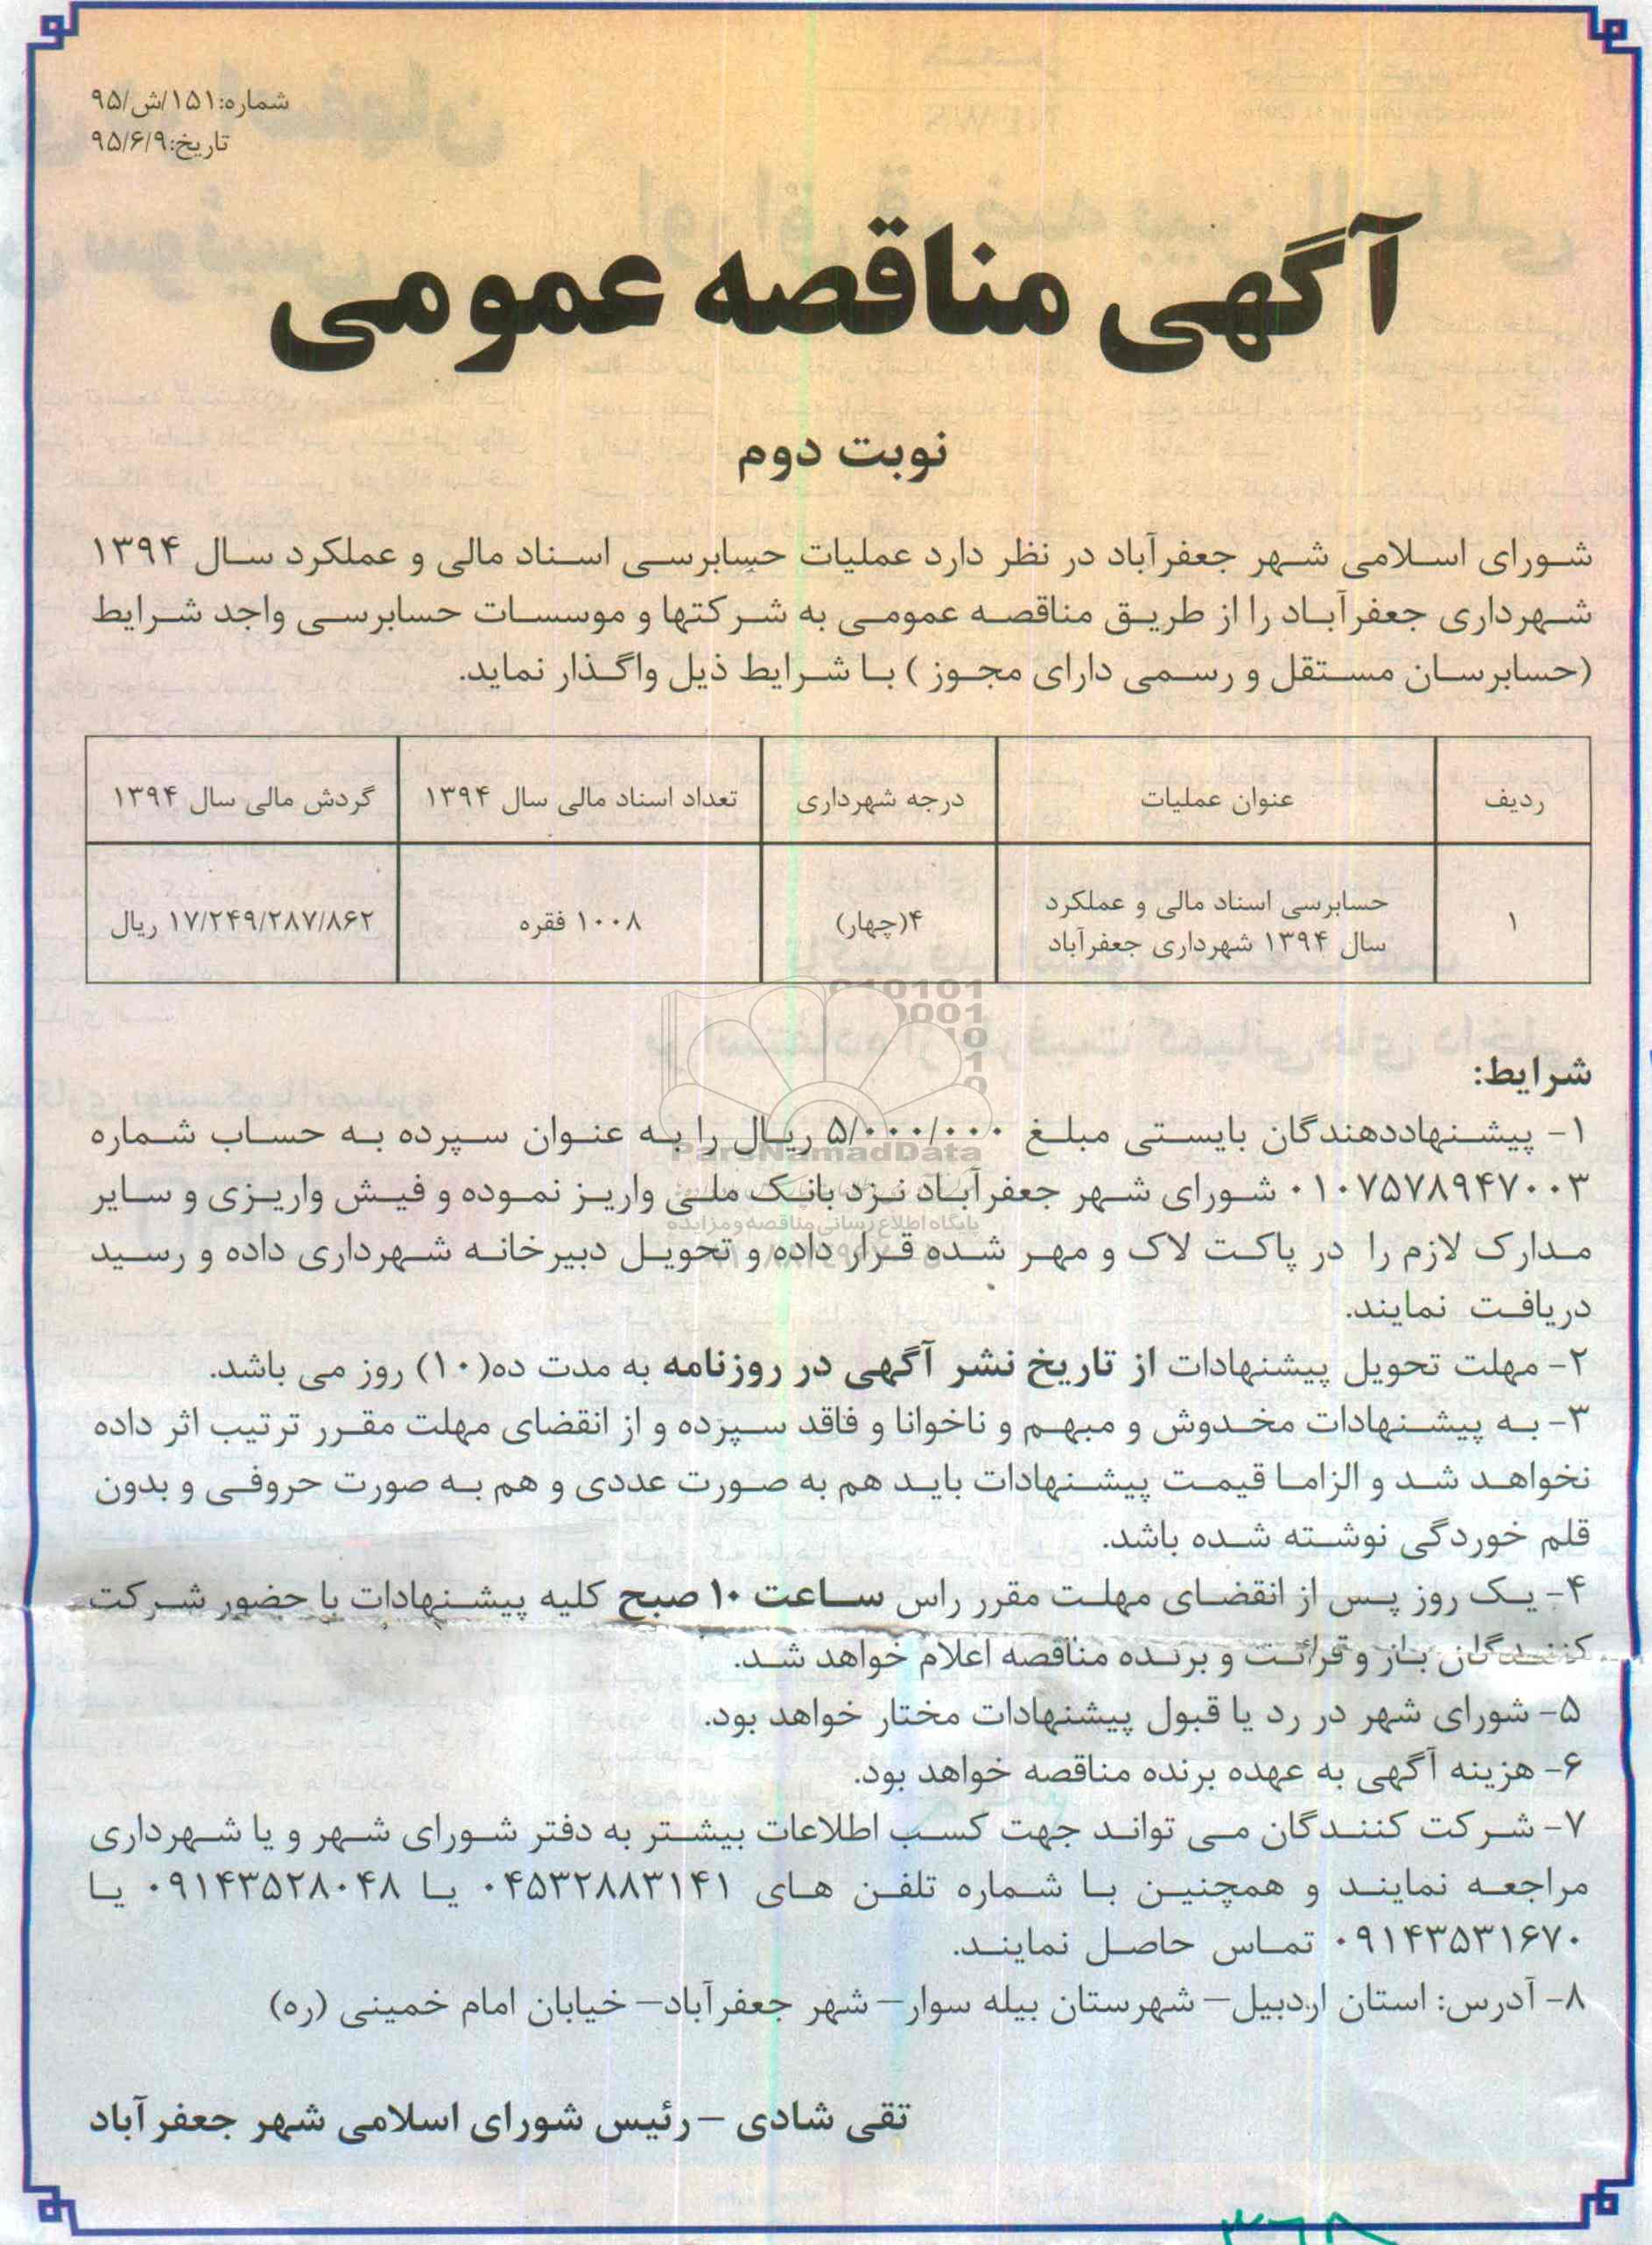 شماره:۱۵۱/ش/۹۵
تاریخ:۹۵/۶/۹
آگهی مناقصه عمومی
نوبت دوم
شورای اسلامی شهر جعفرآباد در نظر دارد عملیات حسابرسی اسناد مالی و عملکرد سال ۱۳۹۴
شهرداری جعفرآباد را از طریق مناقصه عمومی به شرکتها و موسسات حسابرسی واجد شرایط
(حسابرسان مستقل و رسمی دارای مجوز ) با شرایط ذیل واگذار نماید.
ردیف عنوان عملیات درجه شهرداری تعداد اسناد مالی سال ۱۳۹۴ گردش مالی سال ۱۳۹۴
۱ حسابرسی اسناد مالی و عملکرد
سال ۱۳۹۴ شهرداری جعفرآباد ۴(چهار) ۱۰۰۸ فقره ۱۷/۲۴۹/۲۸۷/۸۶۲ ریال
شرایط:
۱- پیشنهاددهندگان بایستی مبلغ ۵/۰۰۰/۰۰۰ ریال را به عنوان سپرده به حساب شماره
۰۱۰۷۵۷۸۹۴۷۰۰۳ شورای شهر جعفرآباد نزد بانک ملی واریز نموده و فیش واریزی و سایر
مدارک لازم را در پاکت لاک و مهر شده قرار داده و تحویل دبیرخانه شهرداری داده و رسید
دریافت نمایند.
۲- مهلت تحویل پیشنهادات از تاریخ نشر آگهی در روزنامه به مدت ده(۱۰) روز می باشد.
۳- به پیشنهادات مخدوش و مبهم و ناخوانا و فاقد سپرده و از انقضای مهلت مقرر ترتیب اثر داده
نخواهد شد و الزاما قیمت پیشنهادات باید هم به صورت عددی و هم به صورت حروفی و بدون
قلم خوردگی نوشته شده باشد.
۴- یک روز پس از انقضای مهلت مقرر راس ساعت ۱۰ صبح کلیه پیشنهادات با حضور شرکت
کنندگان باز و قرائت و برنده مناقصه اعلام خواهد شد.
۵- شورای شهر در رد یا قبول پیشنهادات مختار خواهد بود.
۶- هزینه آگهی به عهده برنده مناقصه خواهد بود.
۷- شرکت کنندگان می تواند جهت کسب اطلاعات بیشتر به دفتر شورای شهر و یا شهرداری
مراجعه نمایند و همچنین با شماره تلفن های ۰۴۵۳۲۸۸۳۱۴۱ یا ۰۹۱۴۳۵۲۸۰۴۸ یا
۰۹۱۴۳۵۳۱۶۷۰ تماس حاصل نمایند.
۸- آدرس: استان اردبیل– شهرستان بیله سوار– شهر جعفرآباد– خیابان امام خمینی (ره)
تقی شادی – رئیس شورای اسلامی شهر جعفرآباد
ParsNamadData
پایگاه اطلاع رسانی مناقصه و مزایده